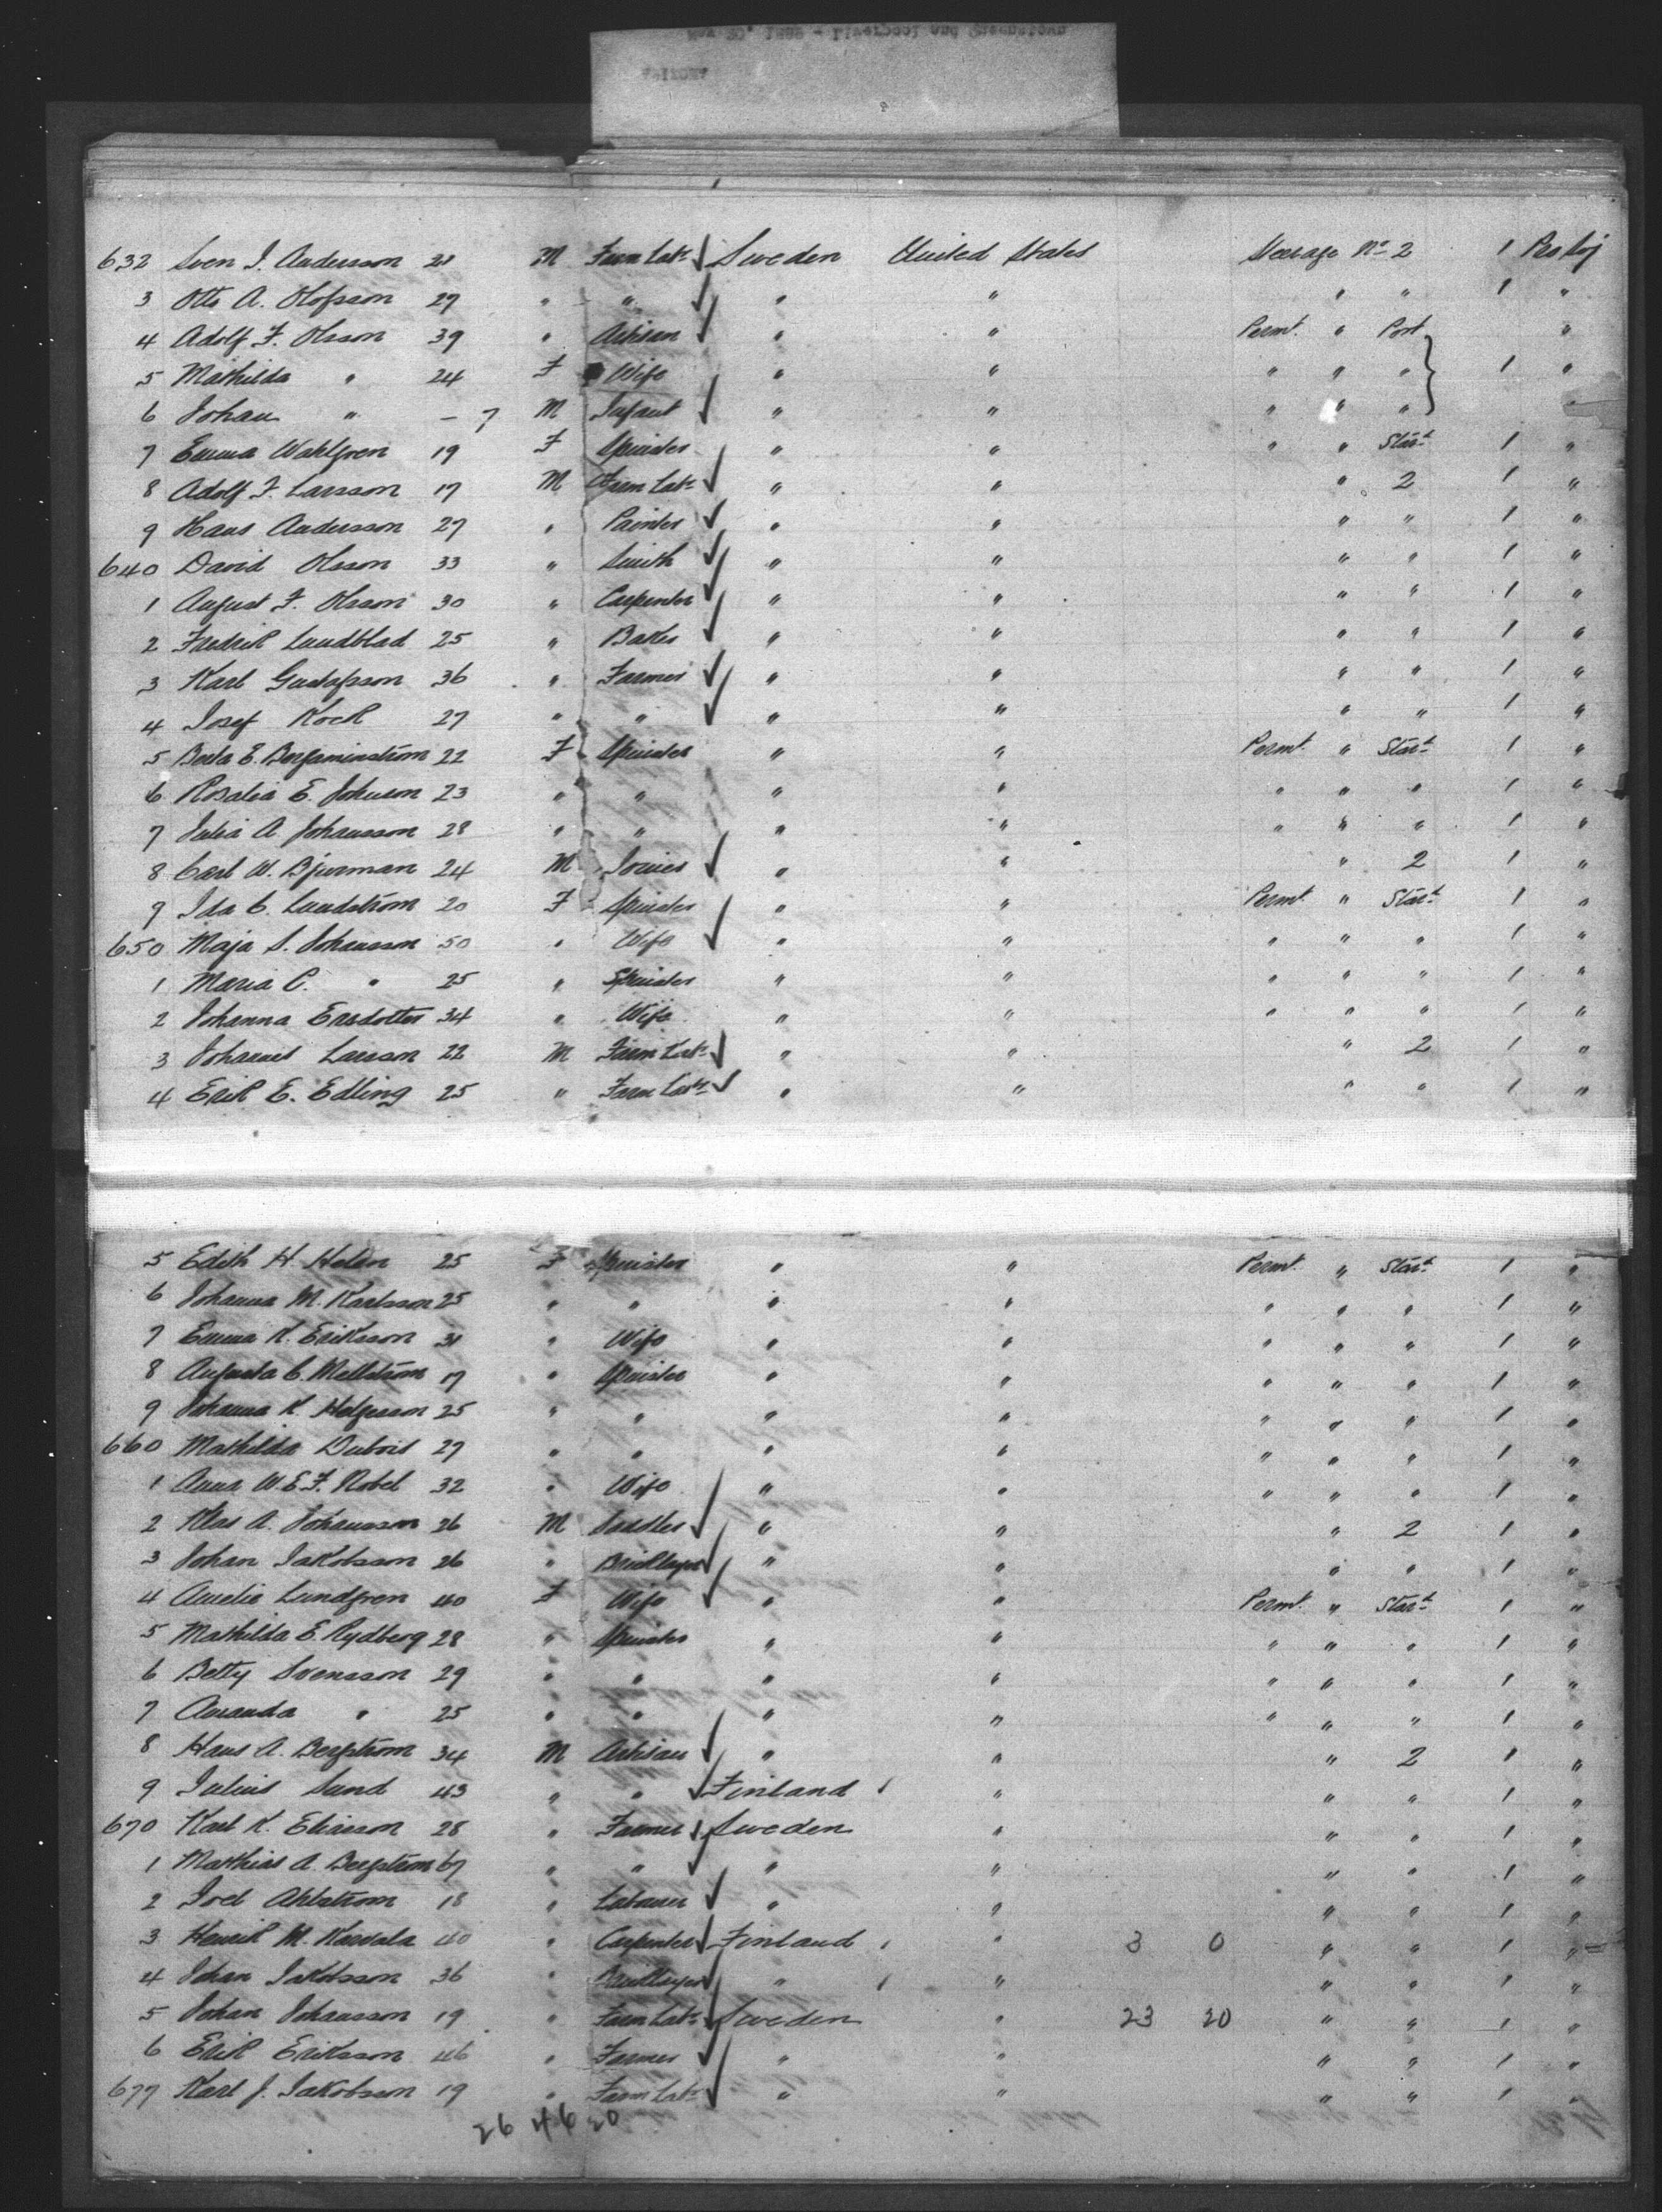 632 Sven J. Andersson 21 M Farm Labr Sweden United States Steerage No 2 1 Pro Soj
3 Otto A. Olofsson 27 " " " " " " 1 "
4 Adolf F. Olsson 39 " Artisan " " Permt. " Port "
5 Mathilda " 24 F Wife " " " " " 1 "
6 Johan " - 7 M Infant " " " " " "
7 Emma Wahlgren 19 F Spinster " " " " Starb 1 "
8 Adolf F. Larsson 17 M Farm Labr " " " 2 1 "
9 Hans Andersson 27 " Painter " " " " 1 "
640 David Olsson 33 " Smith " " " " 1 "
1 August F. Olsson 30 " Carpenter " " " " 1 "
2 Fredrik Lundblad 25 " Baker " " " " 1 "
3 Karl Gustafsson 36 " Farmer " " " " 1 "
4 Josef Kock 27 " " " " " " 1 "
5 Berta E. Benjaminström 22 F Spinster " " Permt. " Starb 1 "
6 Rosalia E. Johnson 23 " " " " " " " 1 "
7 Julia A. Johansson 28 " " " " " " " 1 "
8 Carl W. Bjurman 24 M Joiner " " " 2 1 "
9 Ida C. Lundström 20 F Spinster " " Permt. " Starb 1 "
650 Maja S. Johansson 50 " Wife " " " " " 1 "
1 Maria C. " 25 " Spinster " " " " " 1 "
2 Johanna Ersdotter 34 " Wife " " " " " 1 "
3 Johannes Larsson 22 M Farm Labr " " " 2 1 "
4 Erik E. Edling 25 " Farm Labr " " " " 1 "
5 Edith H. Helen 25 F Spinster " " Permt. " Starb 1 "
6 Johanna M. Karlsson 25 " " " " " " " 1 "
7 Emma K. Eriksson 31 " Wife " " " " " 1 "
8 Augusta C. Mellström 17 " Spinster " " " " " 1 "
9 Johanna K. Helgesson 25 " " " " " " " 1 "
660 Mathilda Dubois 27 " " " " " " " 1 "
1 Anna W. E. F. Nobel 32 " Wife " " " " " 1 "
2 Klas A. Johansson 26 M Saddler " " " 2 1 "
3 Johan Jakobsson 26 " Bricklayer " " " " 1 "
4 Amelie Lundgren 40 F Wife " " Permt. " Starb 1 "
5 Mathilda E. Rydberg 28 " Spinster " " " " " 1 "
6 Betty Svensson 29 " " " " " " " 1 "
7 Amanda " 25 " " " " " " " 1 "
8 Hans A. Bergström 34 M Artisan " " " 2 1 "
9 Julius Sund 43 " " Finland " " " 1 "
670 Karl K. Eliasson 28 " Farmer Sweden " " " 1 "
1 Mathias A. Bergström 67 " " " " " " 1 "
2 Joel Ahlström 18 " Labourer " " " " 1 "
3 Henrik M. 40 " Carpenter Finland " 3 0 " " 1 "
4 Johan Jakobsson 36 " Bricklayer " " " " 1 "
5 Johan Johansson 19 " Farm Labr Sweden " 23 20 " " 1 "
6 Erik Eriksson 46 " Farmer " " " " 1 "
677 Karl J. Jakobson 19 " Farm Labr " " " " 1 "
26 46 20